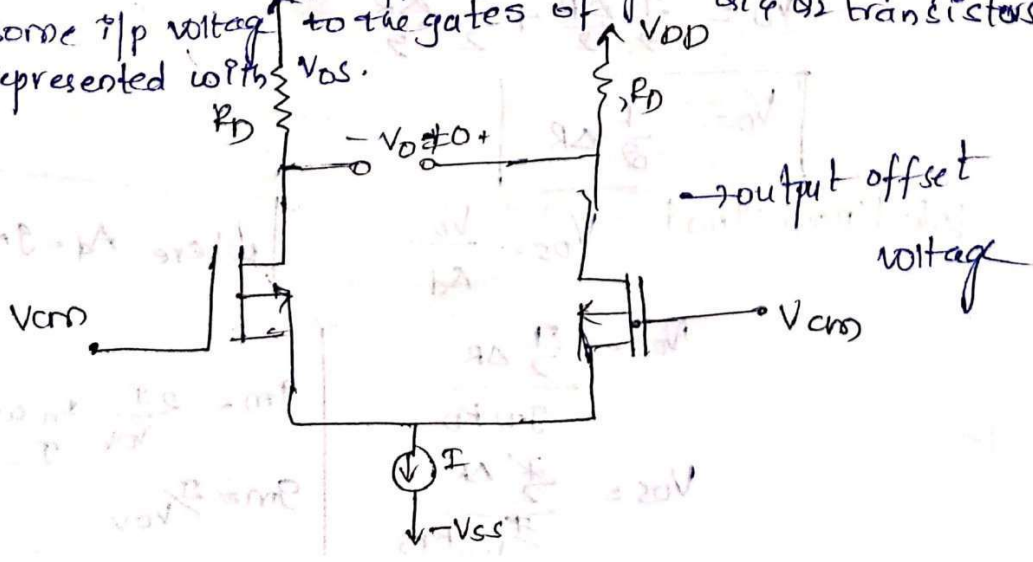 some i/p voltage to the gates of Q1 & Q2 transistors
represented with VOS.
VDD
RD
RD
- VO ≠ 0 +
→ output offset
voltage
Vcm
Vcm
I
-VSS